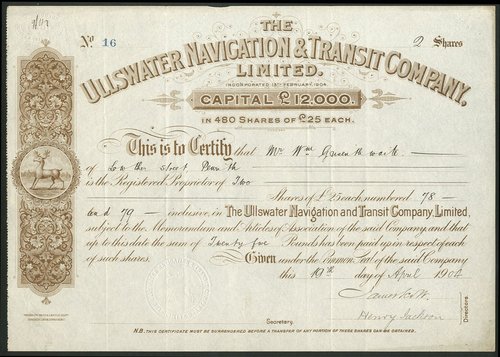 THE
Nº 16
2 Shares
ULLSWATER NAVIGATION & TRANSIT COMPANY,
LIMITED.
INCORPORATED 13TH FEBRUARY, 1904.
CAPITAL £12,000.
IN 480 SHARES OF £25 EACH.
This is to Certify that Mr Wm
of Lowther Street Penrith
is the Registered Proprietor of Two
Shares of £25 each, numbered 78
and 79 inclusive, in The Ullswater Navigation and Transit Company, Limited,
subject to the Memorandum and Articles of Association of the said Company, and that
up to this date the sum of Twenty five Pounds has been paid up in respect of each
of such shares.
Given under the Common Seal of the said Company
this 19th day of April 1904
Henry Jackson
Directors.
Secretary.
N.B. THIS CERTIFICATE MUST BE SURRENDERED BEFORE A TRANSFER OF ANY PORTION OF THESE SHARES CAN BE OBTAINED.